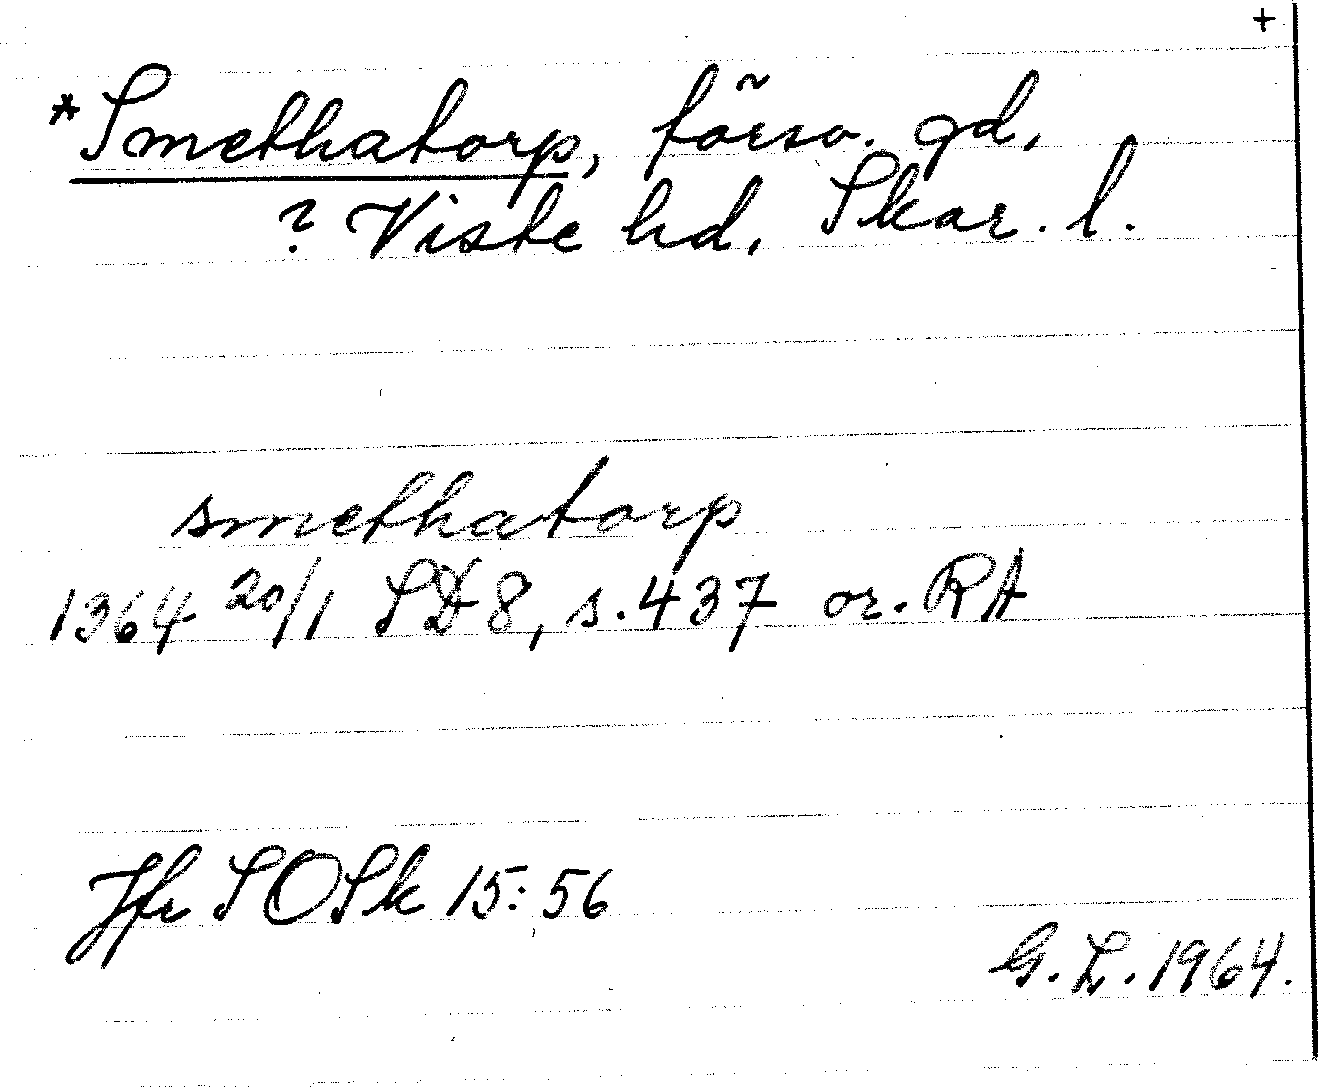 +
*Smethatorp, försv. gd,
? Viste hd, Skar. l.
smethatorp
1364 20/1 SD 8, s. 437 or. RA
Jfr SOSk 15: 56
G. L. 1964.